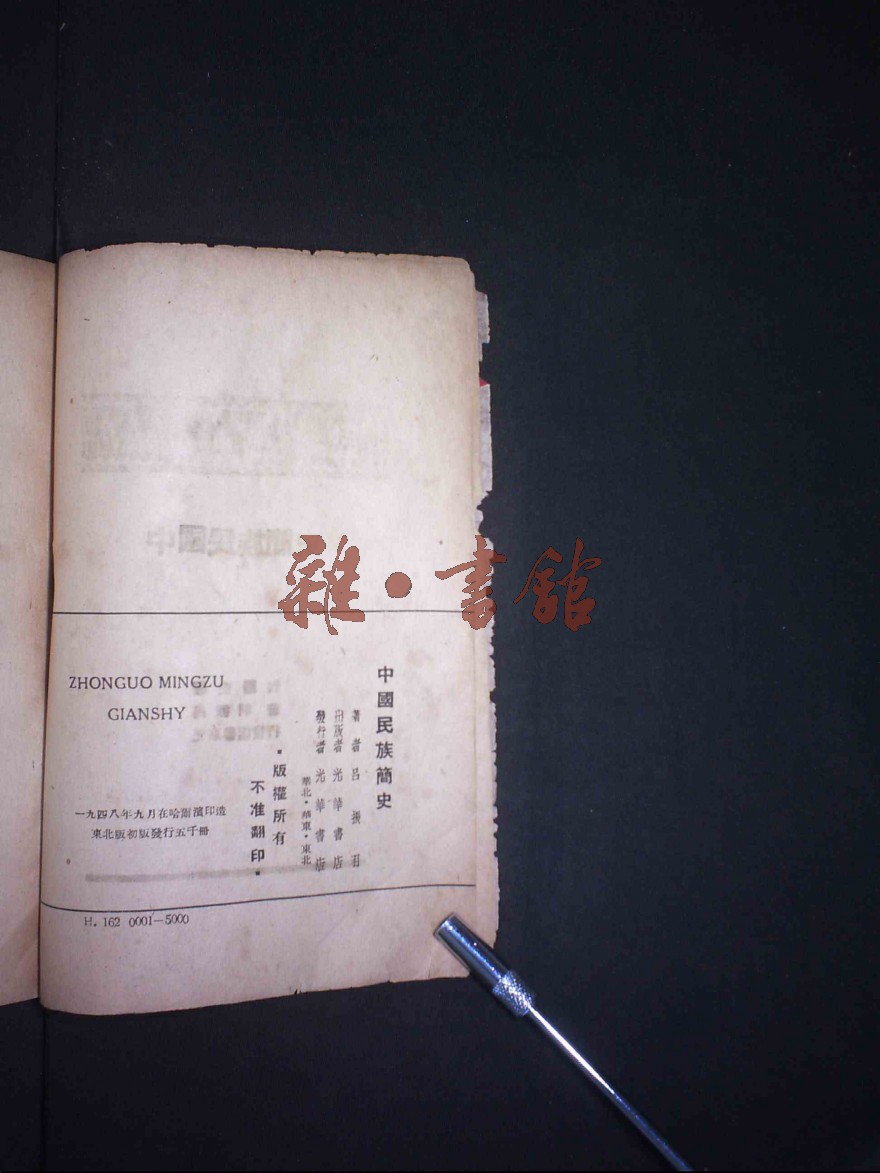 雜·書館
中國民族簡史
著者 呂振羽
出版者 光華書店
發行者 光華書店
華北·華東·東北
·版權所有
不准翻印·
ZHONGUO MINGZU
GIANSHY
一九四八年九月在哈爾濱印造
東北版初版發行五千冊
H. 162 0001—5000